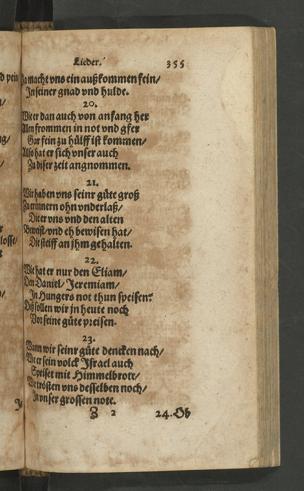 Lieder. 355
Da macht vns ein außkommen fein/
In seiner gnad vnd hulde.
20.
Wie er dan auch von anfang her
Allen frommen in not vnd gfer
Gar fein zu hülff ist kommen/
Also hat er sich vnser auch
Zu diser zeit angnommen.
21.
Wir haben vns seinr güte groß
Zu erinnern ohn vnderlaß/
Die er vns vnd den alten
Bewist/ vnd eh bewisen hat/
Die steiff an jhm gehalten.
22.
Wie hat er nur den Eliam/
Den Daniel/ Jeremiam/
In Hungers not thun speisen?
Deß sollen wir jn heute noch
Vor seine güte preisen.
23.
Wann wir seinr güte dencken nach/
Wie er sein volck Israel auch
Speiset mit Himmelbrott/
Wir trösten vns desselben noch/
In vnser grossen note.
Z 2 24. Ob